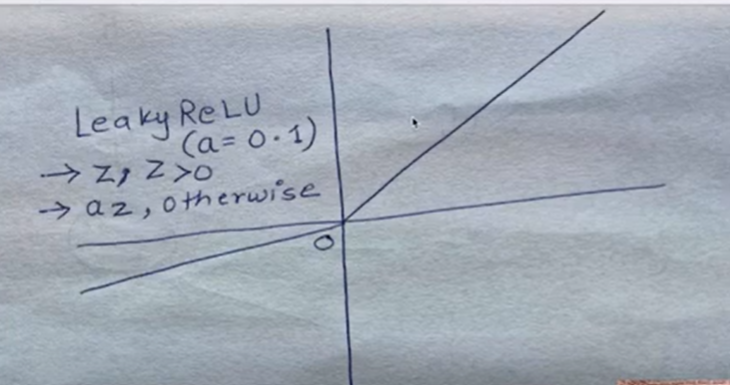 Leaky ReLU
(a = 0.1)
→ z, z >0
→ az, otherwise
O